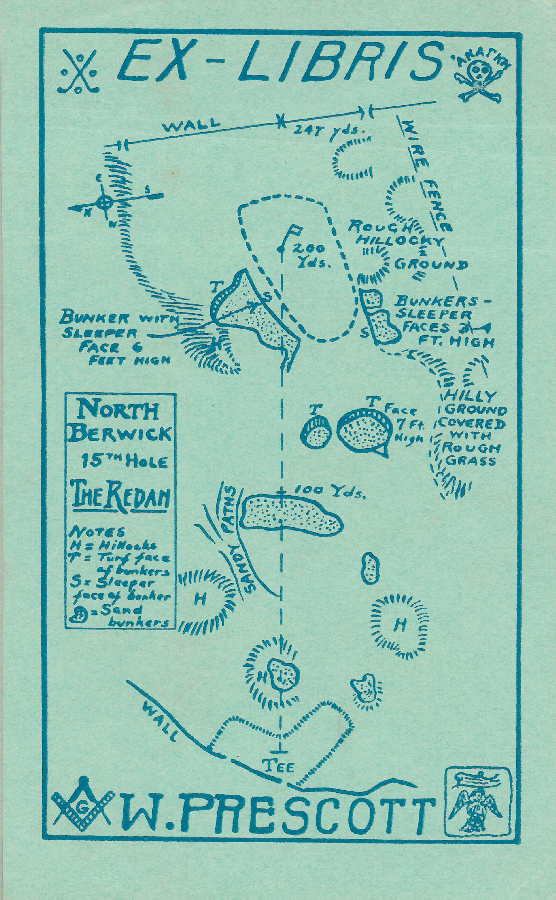 EX-LIBRIS
ἈΝΑΓΚΗ
WALL
247 yds.
WIRE FENCE
E
S
N
W
200
Yds.
ROUGH
HILLOCKY
GROUND
T
S
S
BUNKER WITH
SLEEPER
FACE 6
FEET HIGH
H
BUNKERS-
SLEEPER
FACES 3-4
FT. HIGH
T
T
Face
7 Ft.
High
HILLY
GROUND
COVERED
WITH
ROUGH
GRASS
NORTH
BERWICK
15TH HOLE
THE REDAN
NOTES
H = Hillocks
T = Turf face
of bunkers
S = Sleeper
face of bunker
= Sand
bunkers
100 Yds.
SANDY PATHS
H
H
H
WALL
TEE
G
W. PRESCOTT